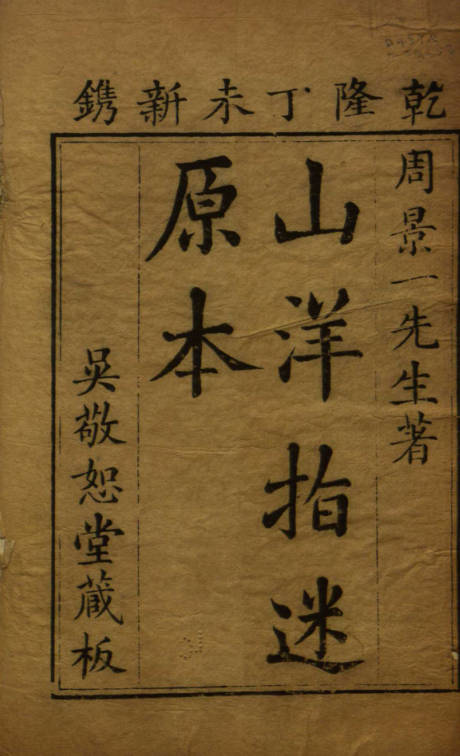 乾隆丁未新鐫
周景一先生著
山洋指迷
原本
吳敬恕堂蔵板